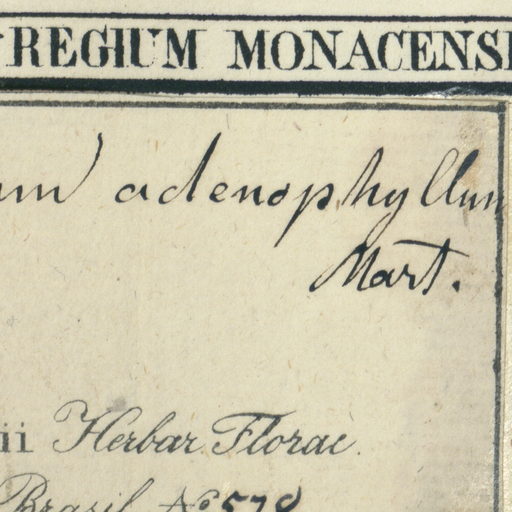 REGIUM MONACENS
um adenophyllum
Mart.
ii Herbar Florae.
Brasil. No 570